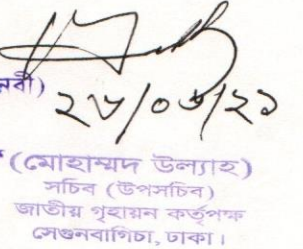 নবী)
২৮/০৬/২১
(মোহাম্মদ উল্যাহ)
সচিব (উপসচিব)
জাতীয় গৃহায়ন কর্তৃপক্ষ
সেগুনবাগিচা, ঢাকা।